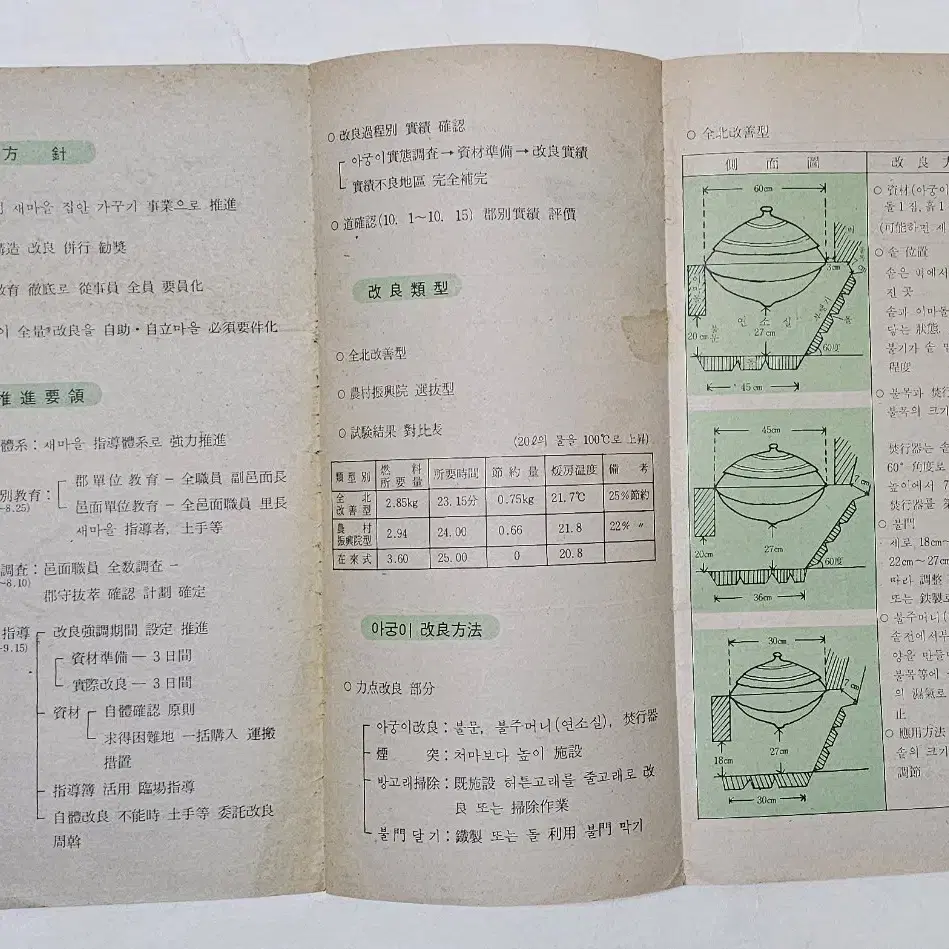 方 針
새마을 집안 가꾸기 事業으로 推進
構造 改良 併行 勸奬
敎育 徹底로 從事員 全員 要員化
이 全量 改良을 自助·自立마을 必須要件化
推進要領
體系: 새마을 指導體系로 強力推進
別教育: 郡單位 教育 - 全職員 副邑面長
~8.25)
邑面單位教育 - 全邑面職員 里長
새마을 指導者, 土手等
調査: 邑面職員 全數調査 -
~8.10)
郡守抜萃 確認 計劃 確定
指導
~9.15)
改良強調期間 設定 推進
資材準備 - 3日間
實際改良 - 3日間
資材
自體確認 原則
求得困難地 一括購入 運搬
措置
指導簿 活用 臨場指導
自體改良 不能時 土手等 委託改良
周斡
○ 改良過程別 實績 確認
아궁이實態調査→資材準備→改良實績
實績不良地區 完全補完
○ 道確認(10. 1~10. 15) 郡別實績 評價
改良類型
○ 全北改善型
○ 農村振興院 選抜型
○ 試驗結果 對比表
(20ℓ의 물을 100℃로 上昇)
類型別 燃料所要量 所要時間 節約量 煖房温度 備考
全北改善型 2.85kg 23.15分 0.75kg 21.7℃ 25%節約
農村振興院型 2.94 24.00 0.66 21.8 22% 〃
在來式 3.60 25.00 0 20.8
아궁이 改良方法
○ 力点改良 部分
아궁이改良: 불문, 불주머니(연소실), 焚行器
煙 突: 처마보다 높이 施設
방고래掃除: 既施設 허튼고래를 줄고래로 改
良 또는 掃除作業
불門 달기: 鐵製 또는 돌 利用 불門 막기
○ 全北改善型
側面圖
改良方
60cm
3cm
연소실
27cm
20cm
60度
45cm
45cm
7cm
20cm
27cm
60度
36cm
30cm
7cm
18cm
27cm
30cm
○ 資材(아궁이
돌1짐, 흙1
(可能하면 세
○ 솥 位置
솥은 벽에서
진 곳
솥과 이마돌
닿는 狀態,
불기가 솥 밑
程度
○ 불목과 焚行
불목의 크기
焚行器는 솥
60° 角度로
높이에서 7
焚行器를
○ 불門
세로 18cm~
22cm~27cm
따라 調整
또는 鉄製로
○ 불주머니(
솥전에서부
양을 만들
불목等에
의 濕氣로
止
○ 應用方法
솥의 크기
調節